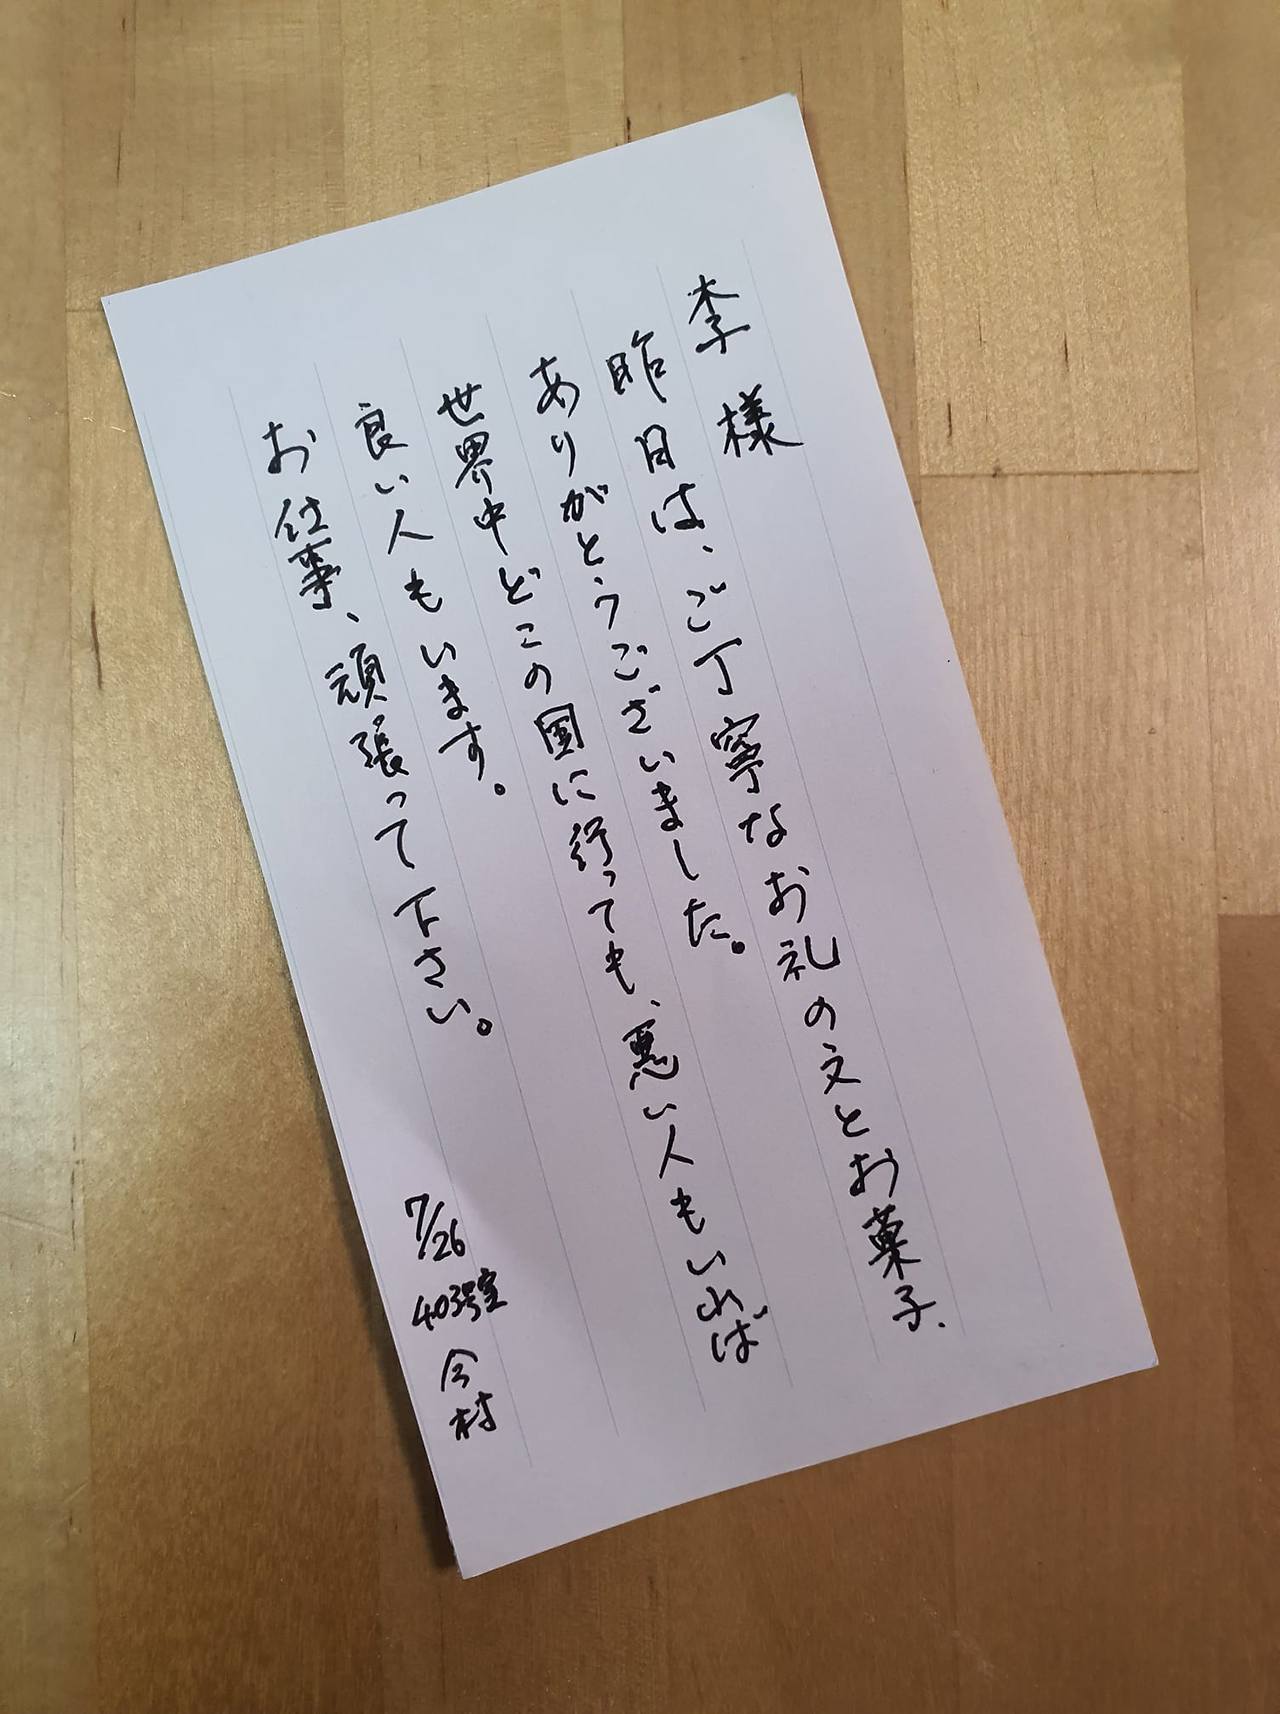 李様
昨日は、ご丁寧なお礼の文とお菓子、
ありがとうございました。
世界中どこの国に行っても、悪い人もいれば
良い人もいます。
お仕事、頑張って下さい。
7/26
403号室
今村